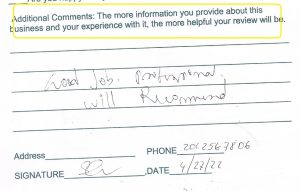 Additional Comments: The more information you provide about this
business and your experience with it, the more helpful your review will be.
Good Job. Professional.
will Recommend
Address
PHONE 201 256 7806
SIGNATURE DATE 4/27/22